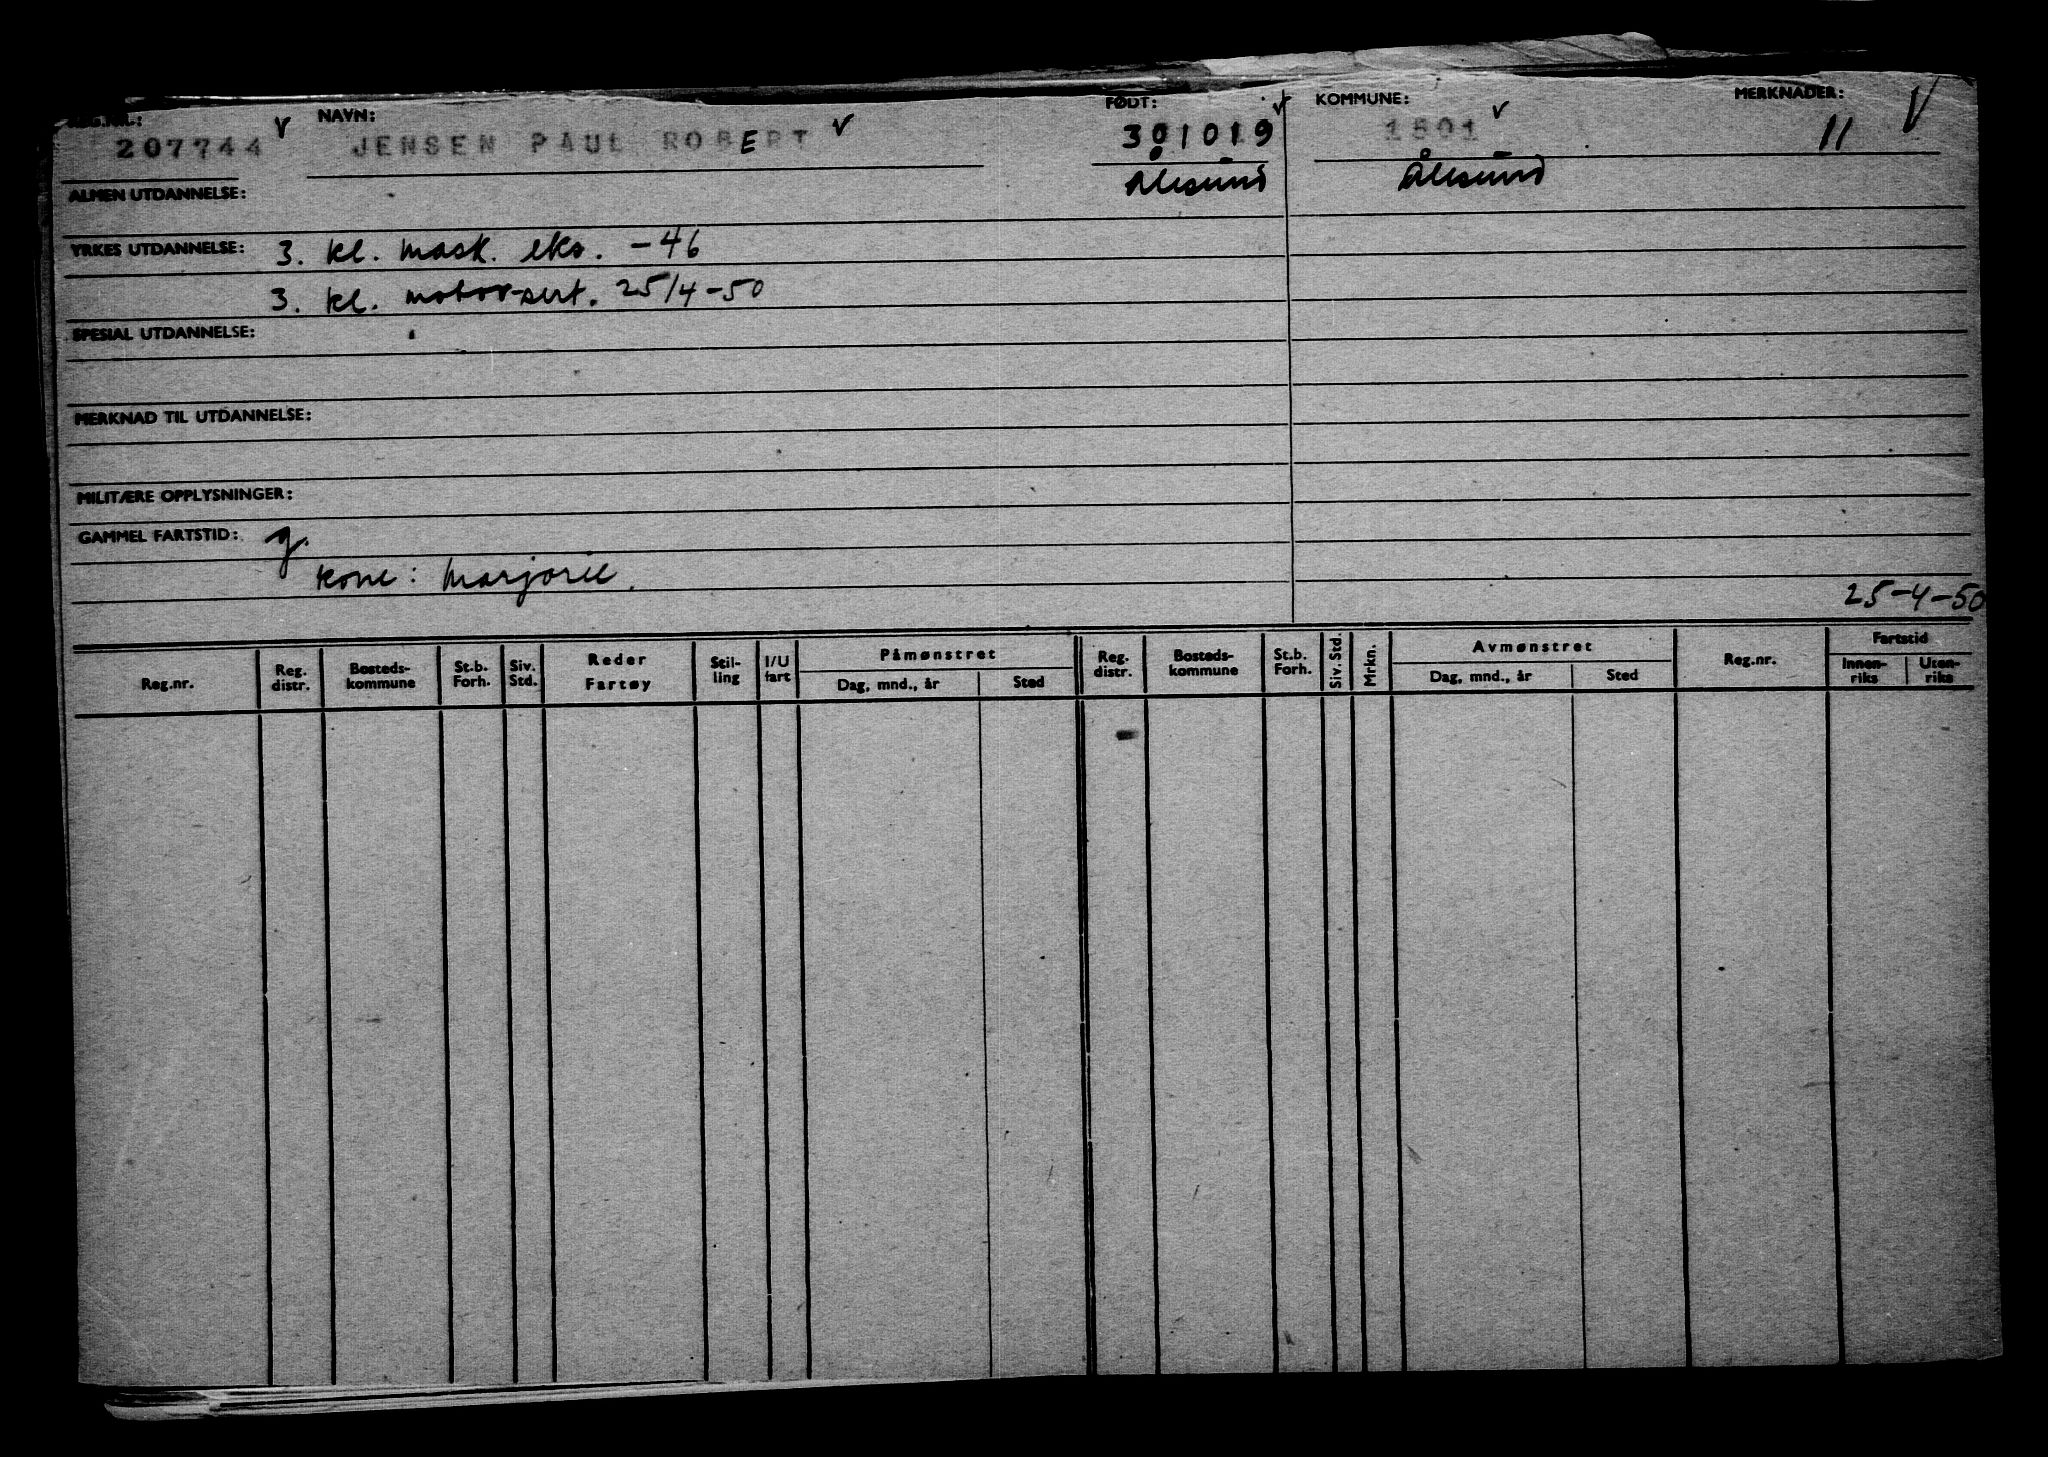 REG.NR.: NAVN: FØDT: KOMMUNE: MERKNADER:
207744 V JENSEN PAUL ROBERT V 301019 V 1501 V 11 V
Ålesund Ålesund
ALMEN UTDANNELSE:
YRKES UTDANNELSE: 3. kl. mask. eks. -46
3. kl. motor-sert. 25/4-50
SPESIAL UTDANNELSE:
MERKNAD TIL UTDANNELSE:
MILITÆRE OPPLYSNINGER:
GAMMEL FARTSTID: g.
kone: Marjorie.
25-4-50
Reg.nr. Reg. distr. Bosteds-kommune St.b. Forh. Siv. Std. Reder Fartøy Stil-ling I/U fart Påmønstret Dag, mnd., år Sted Reg. distr. Bosteds-kommune St.b. Forh. Siv. Std. Mrkn. Avmønstret Dag, mnd., år Sted Reg.nr. Fartstid Innen-riks Uten-riks